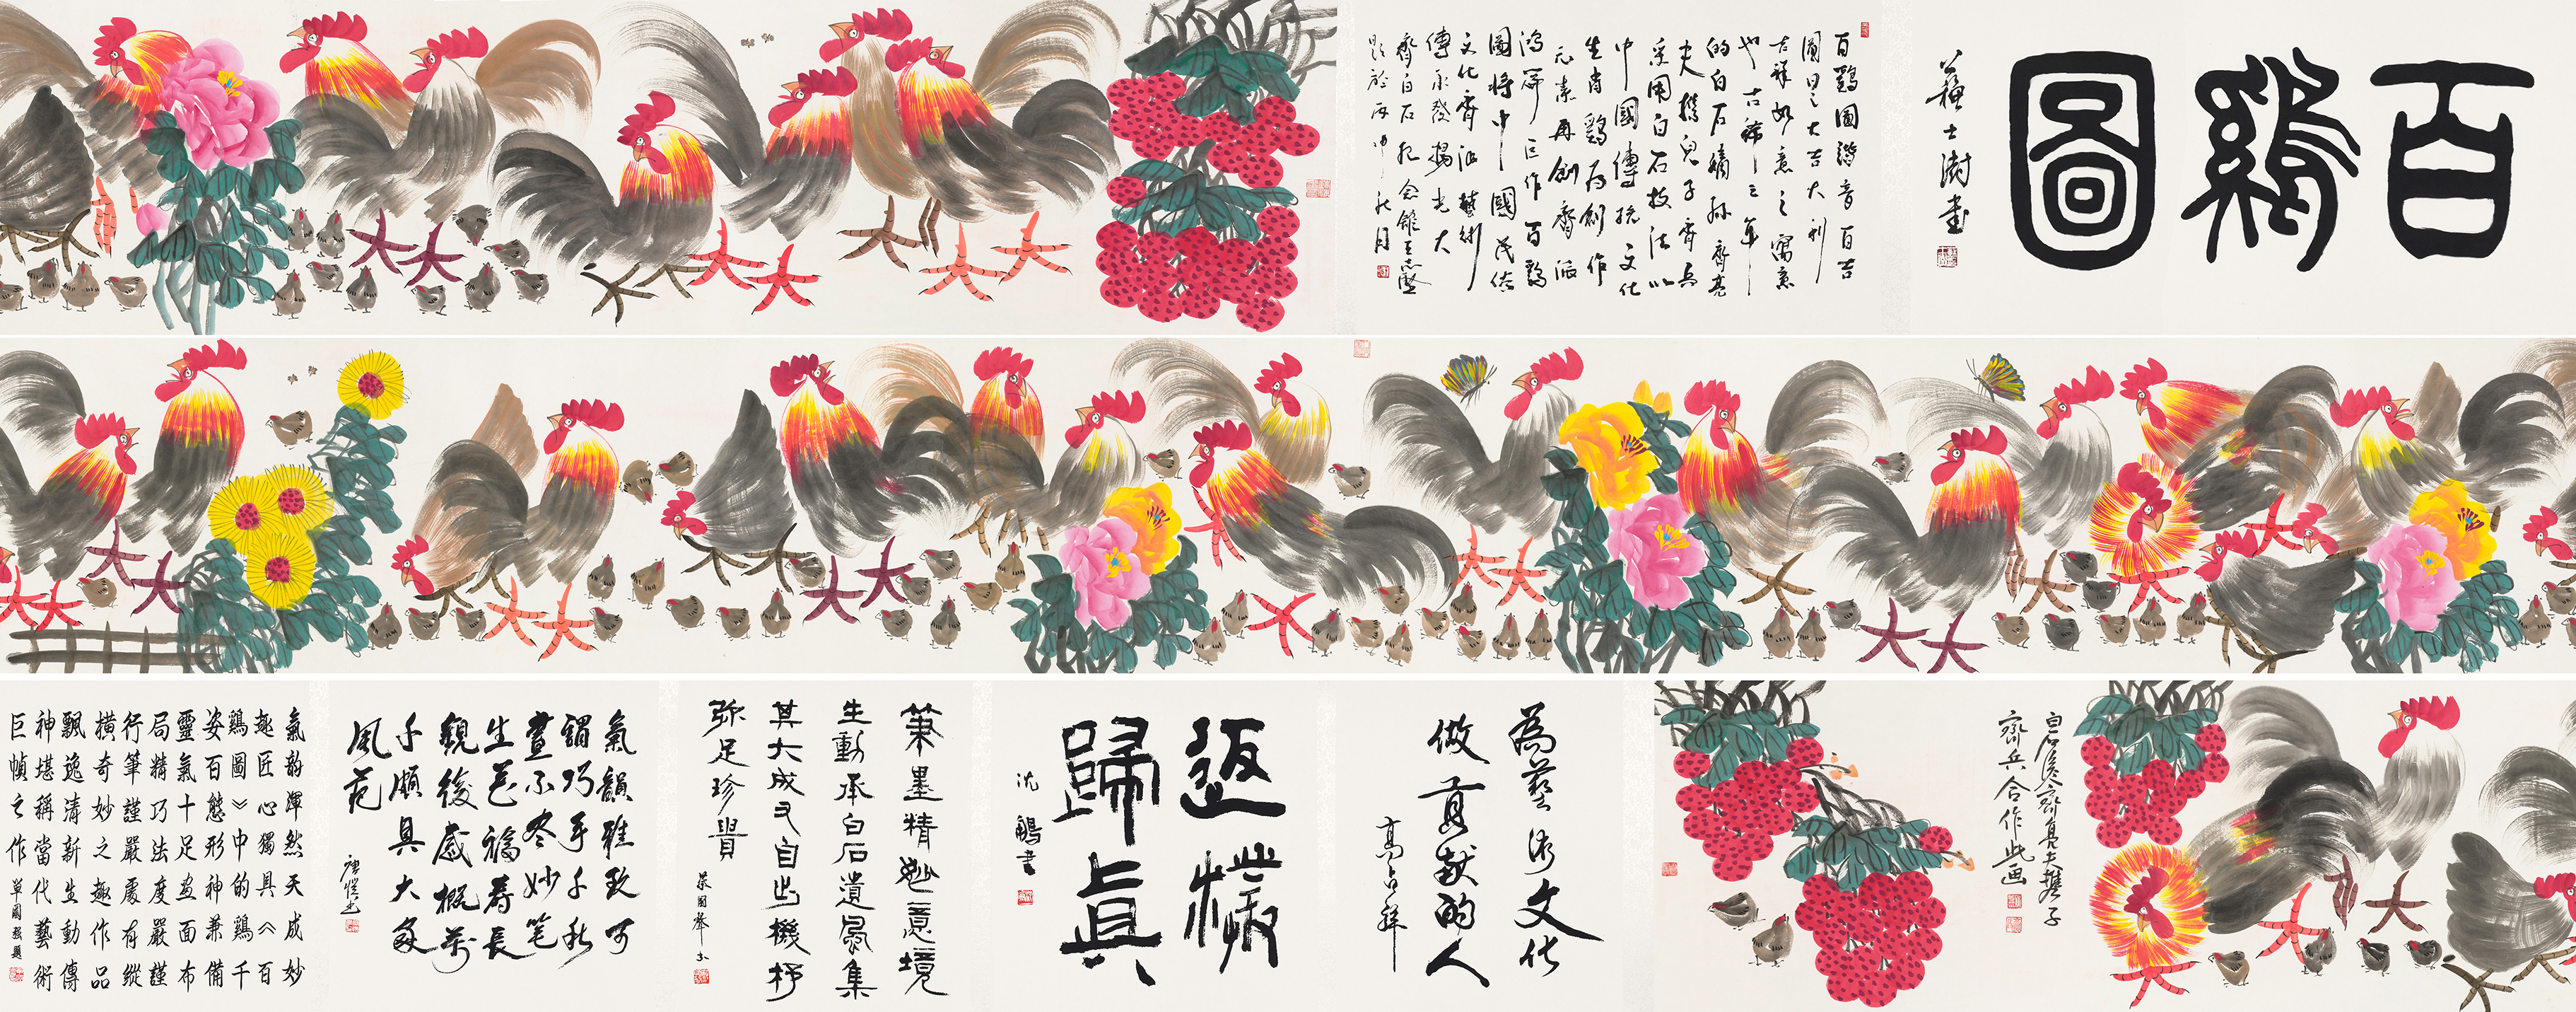 百鷄圖
蘇士澍書
百鷄圖諧音百吉
圖曰之大吉大利
吉祥如意之寓意
也古稀之年
的白石嫡孫齊亮
夫携兒子齊兵
采用白石技法以
中國傳統文化
生肖鷄為創作
元素再創齊派
鴻篇巨作百鷄
圖將中國民俗
文化齊派藝術
傳承發揚光大
齊白石紀念館王志堅
題於丙申秋月
白石後裔齊亮夫携子
齊兵合作此画
為藝術文化
做貢献的人
高占祥
返樸
歸真
沈鵬書
筆墨精妙意境
生動承白石遺風集
其大成又自出機杼
弥足珍貴
蔡國聲书
氣韻雅致可
謂巧手千秋
畫不盡妙笔
生花福壽長
觀後感概萬
千頗具大家
風范
氣韵渾然天成妙
趣匠心獨具《百
鷄圖》中的鷄千
姿百態形神兼備
靈氣十足画面布
局精巧法度嚴謹
行筆謹嚴處有縱
橫奇妙之趣作品
飄逸清新生動傳
神堪稱當代藝術
巨幀之作 單國強題